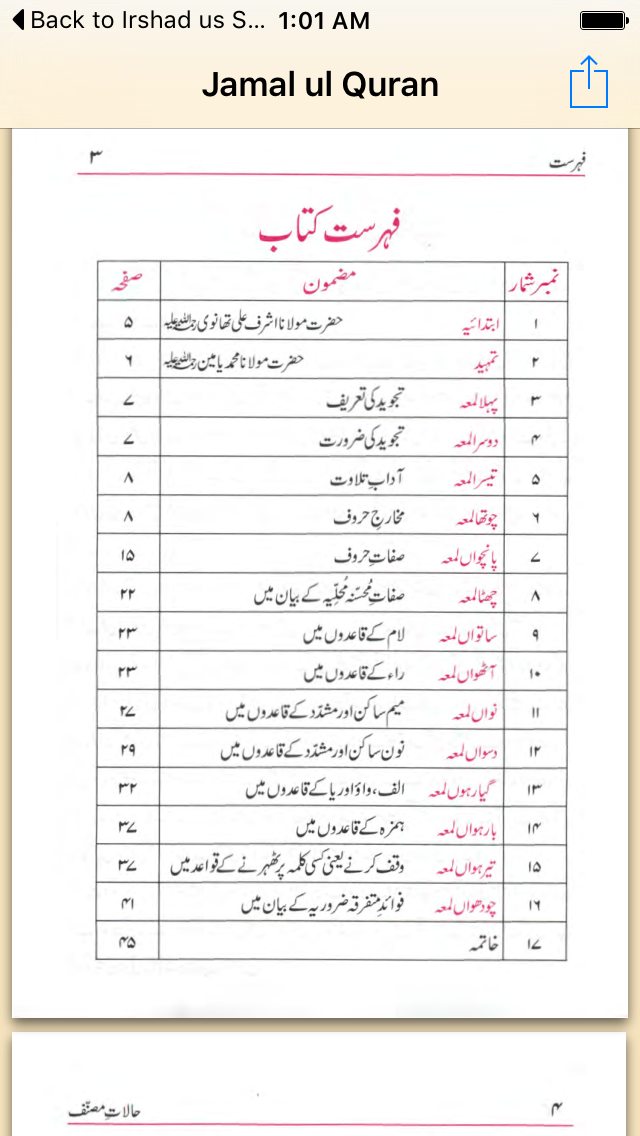 Back to Irshad us S... 1:01 AM
Jamal ul Quran
فہرست ۳
فہرست کتاب
نمبر شمار مضمون صفحہ
۱ ابتدائیہ حضرت مولانا اشرف علی تھانوی رحمۃ اللہ علیہ ۵
۲ تمہید حضرت مولانا محمد یامین رحمۃ اللہ علیہ ۶
۳ پہلا لمعہ تجوید کی تعریف ۷
۴ دوسرا لمعہ تجوید کی ضرورت ۷
۵ تیسرا لمعہ آدابِ تلاوت ۸
۶ چوتھا لمعہ مخارجِ حروف ۸
۷ پانچواں لمعہ صفاتِ حروف ۱۵
۸ چھٹا لمعہ صفاتِ مُحسّنہ مُحلّیہ کے بیان میں ۲۲
۹ ساتواں لمعہ لام کے قاعدوں میں ۲۳
۱۰ آٹھواں لمعہ راء کے قاعدوں میں ۲۳
۱۱ نواں لمعہ میم ساکن اور مشدّد کے قاعدوں میں ۲۷
۱۲ دسواں لمعہ نون ساکن اور مشدّد کے قاعدوں میں ۲۹
۱۳ گیارہوں لمعہ الف، واؤ اور یا کے قاعدوں میں ۳۲
۱۴ بارہواں لمعہ ہمزہ کے قاعدوں میں ۳۷
۱۵ تیرہواں لمعہ وقف کرنے یعنی کسی کلمہ پر ٹھہرنے کے قواعد میں ۳۷
۱۶ چودھواں لمعہ فوائدِ متفرقہ ضروریہ کے بیان میں ۴۱
۱۷ خاتمہ ۴۵
۴ حالاتِ مصنّف